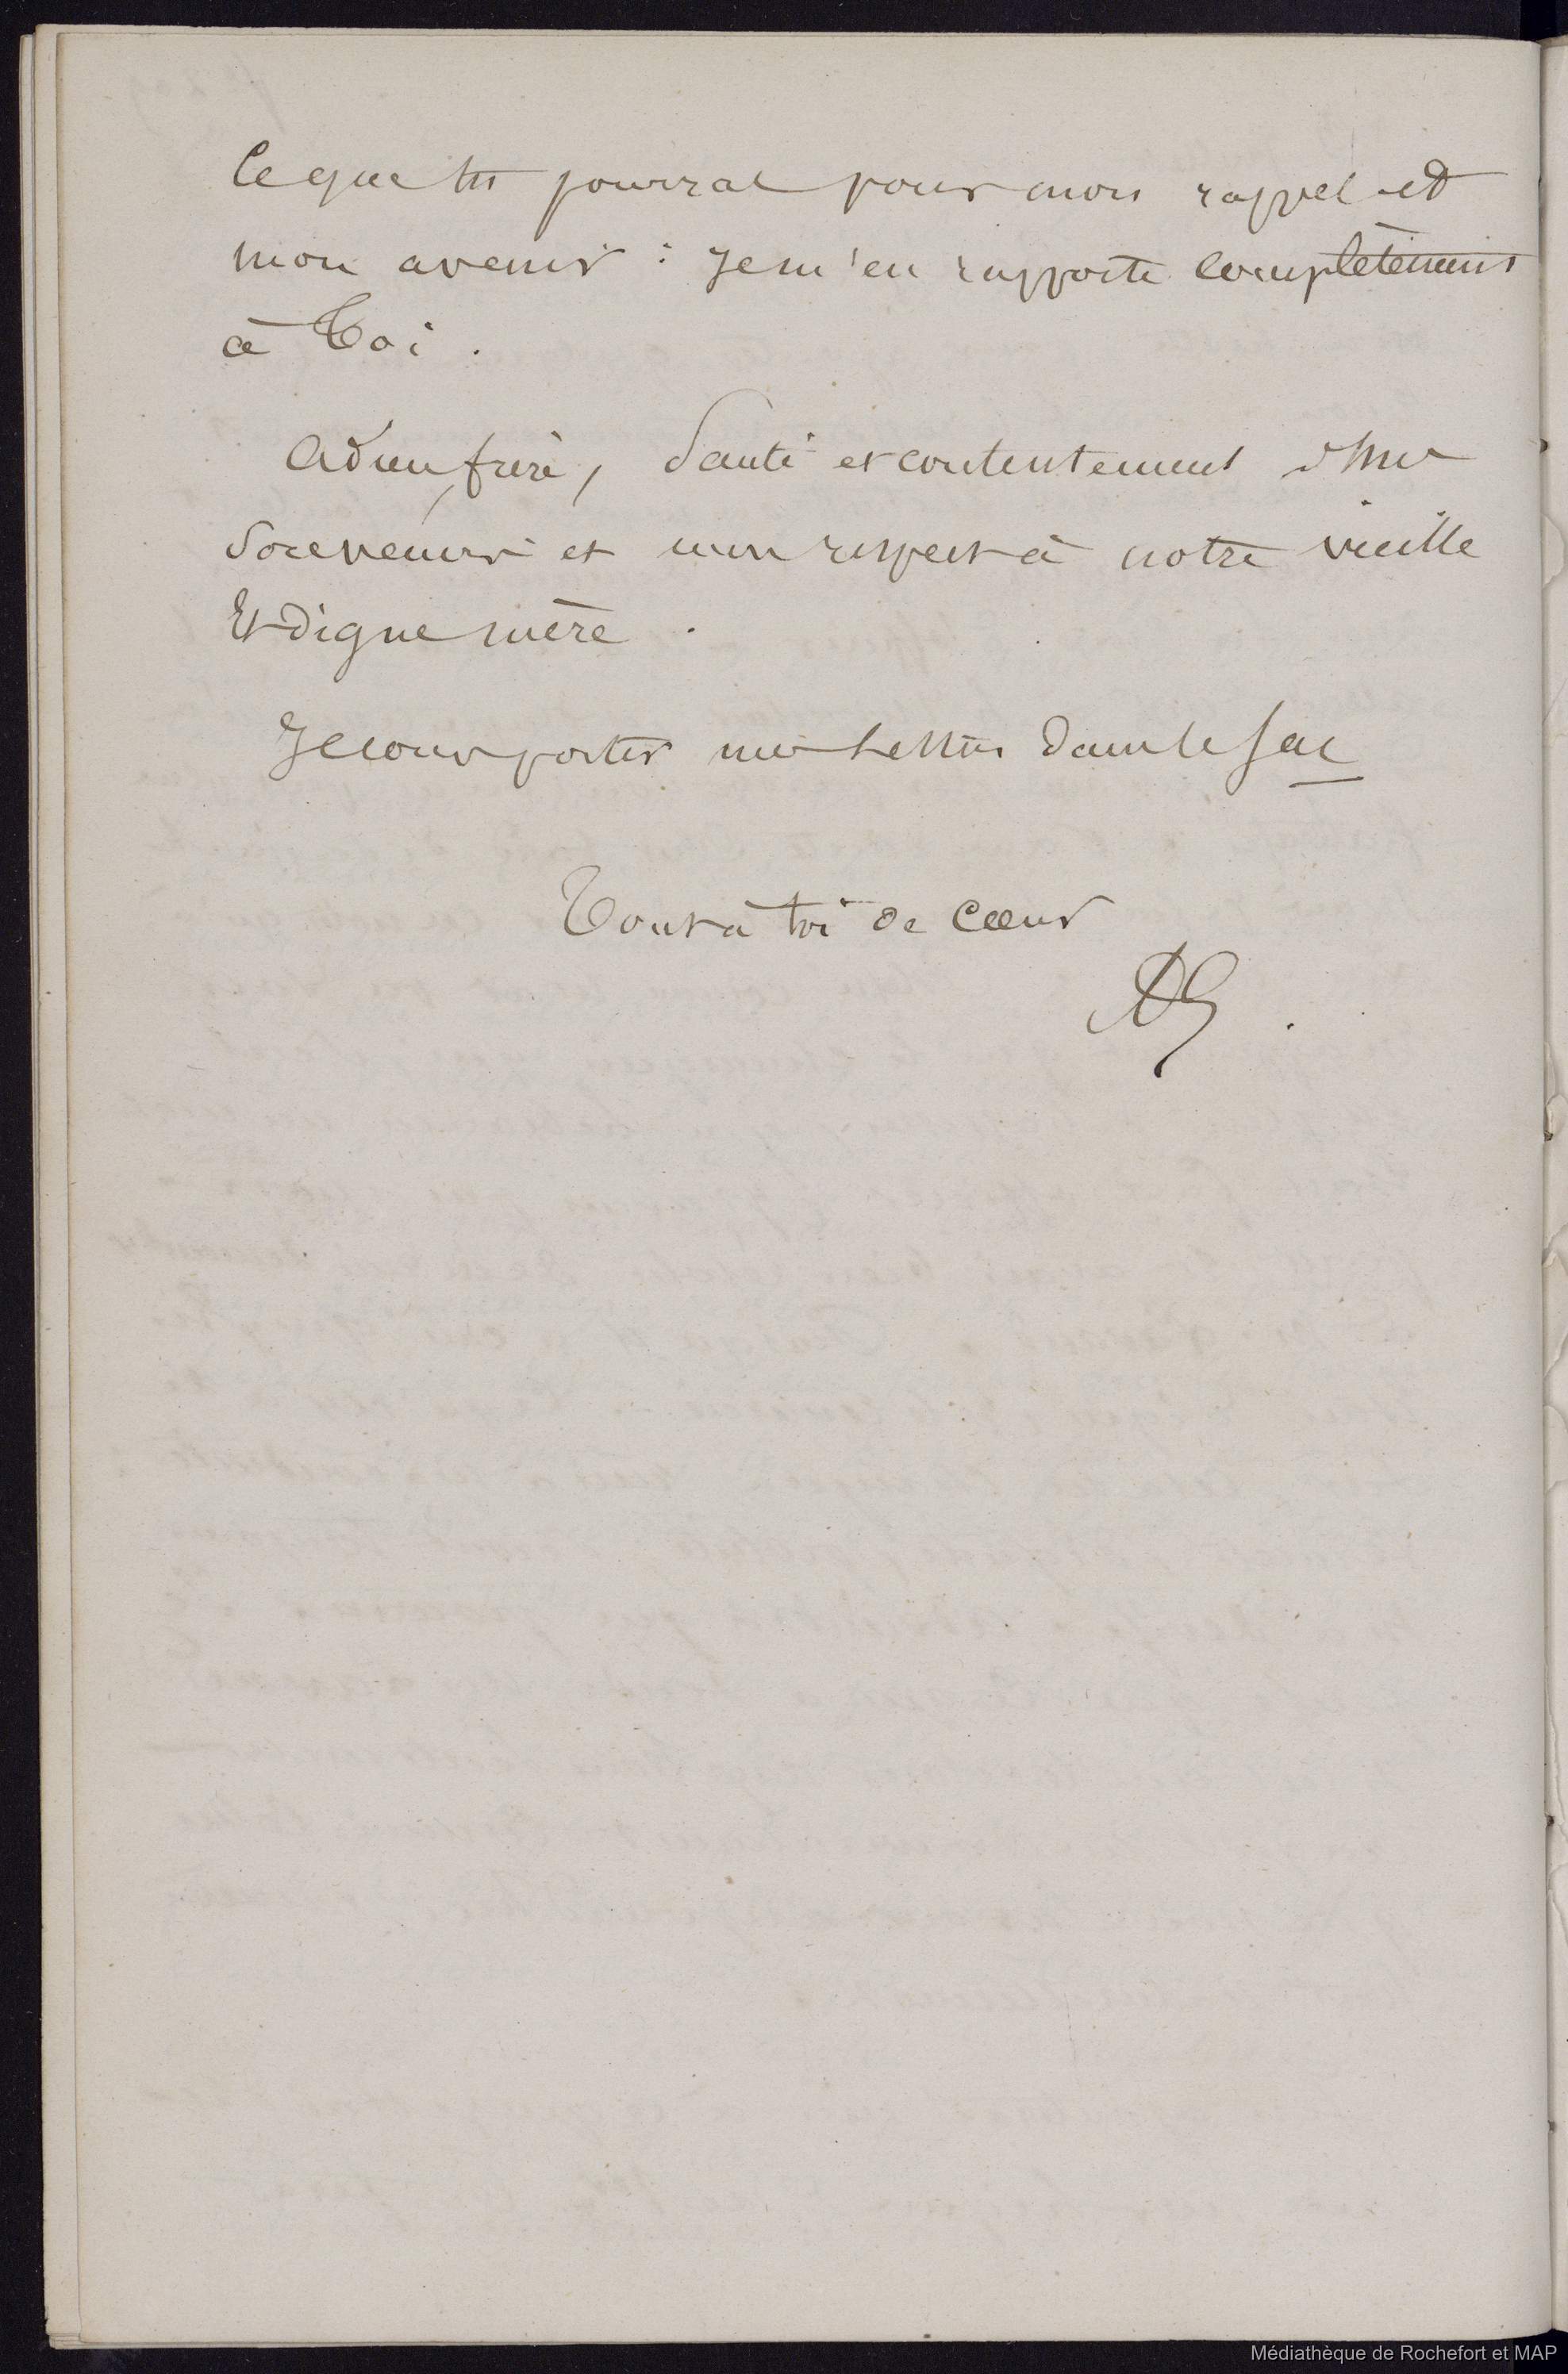 Ce que tu pourras pour mon rappel et
mon avenir : Je m'en rapporte complètement
à Toi .
Adieu, frère, Santé et contentement
Souvenirs et mon respect à notre vieille
Et digne mère .
Je cours porter mes Lettres dans le sac
Tout à toi de Cœur
Médiathèque de Rochefort et MAP